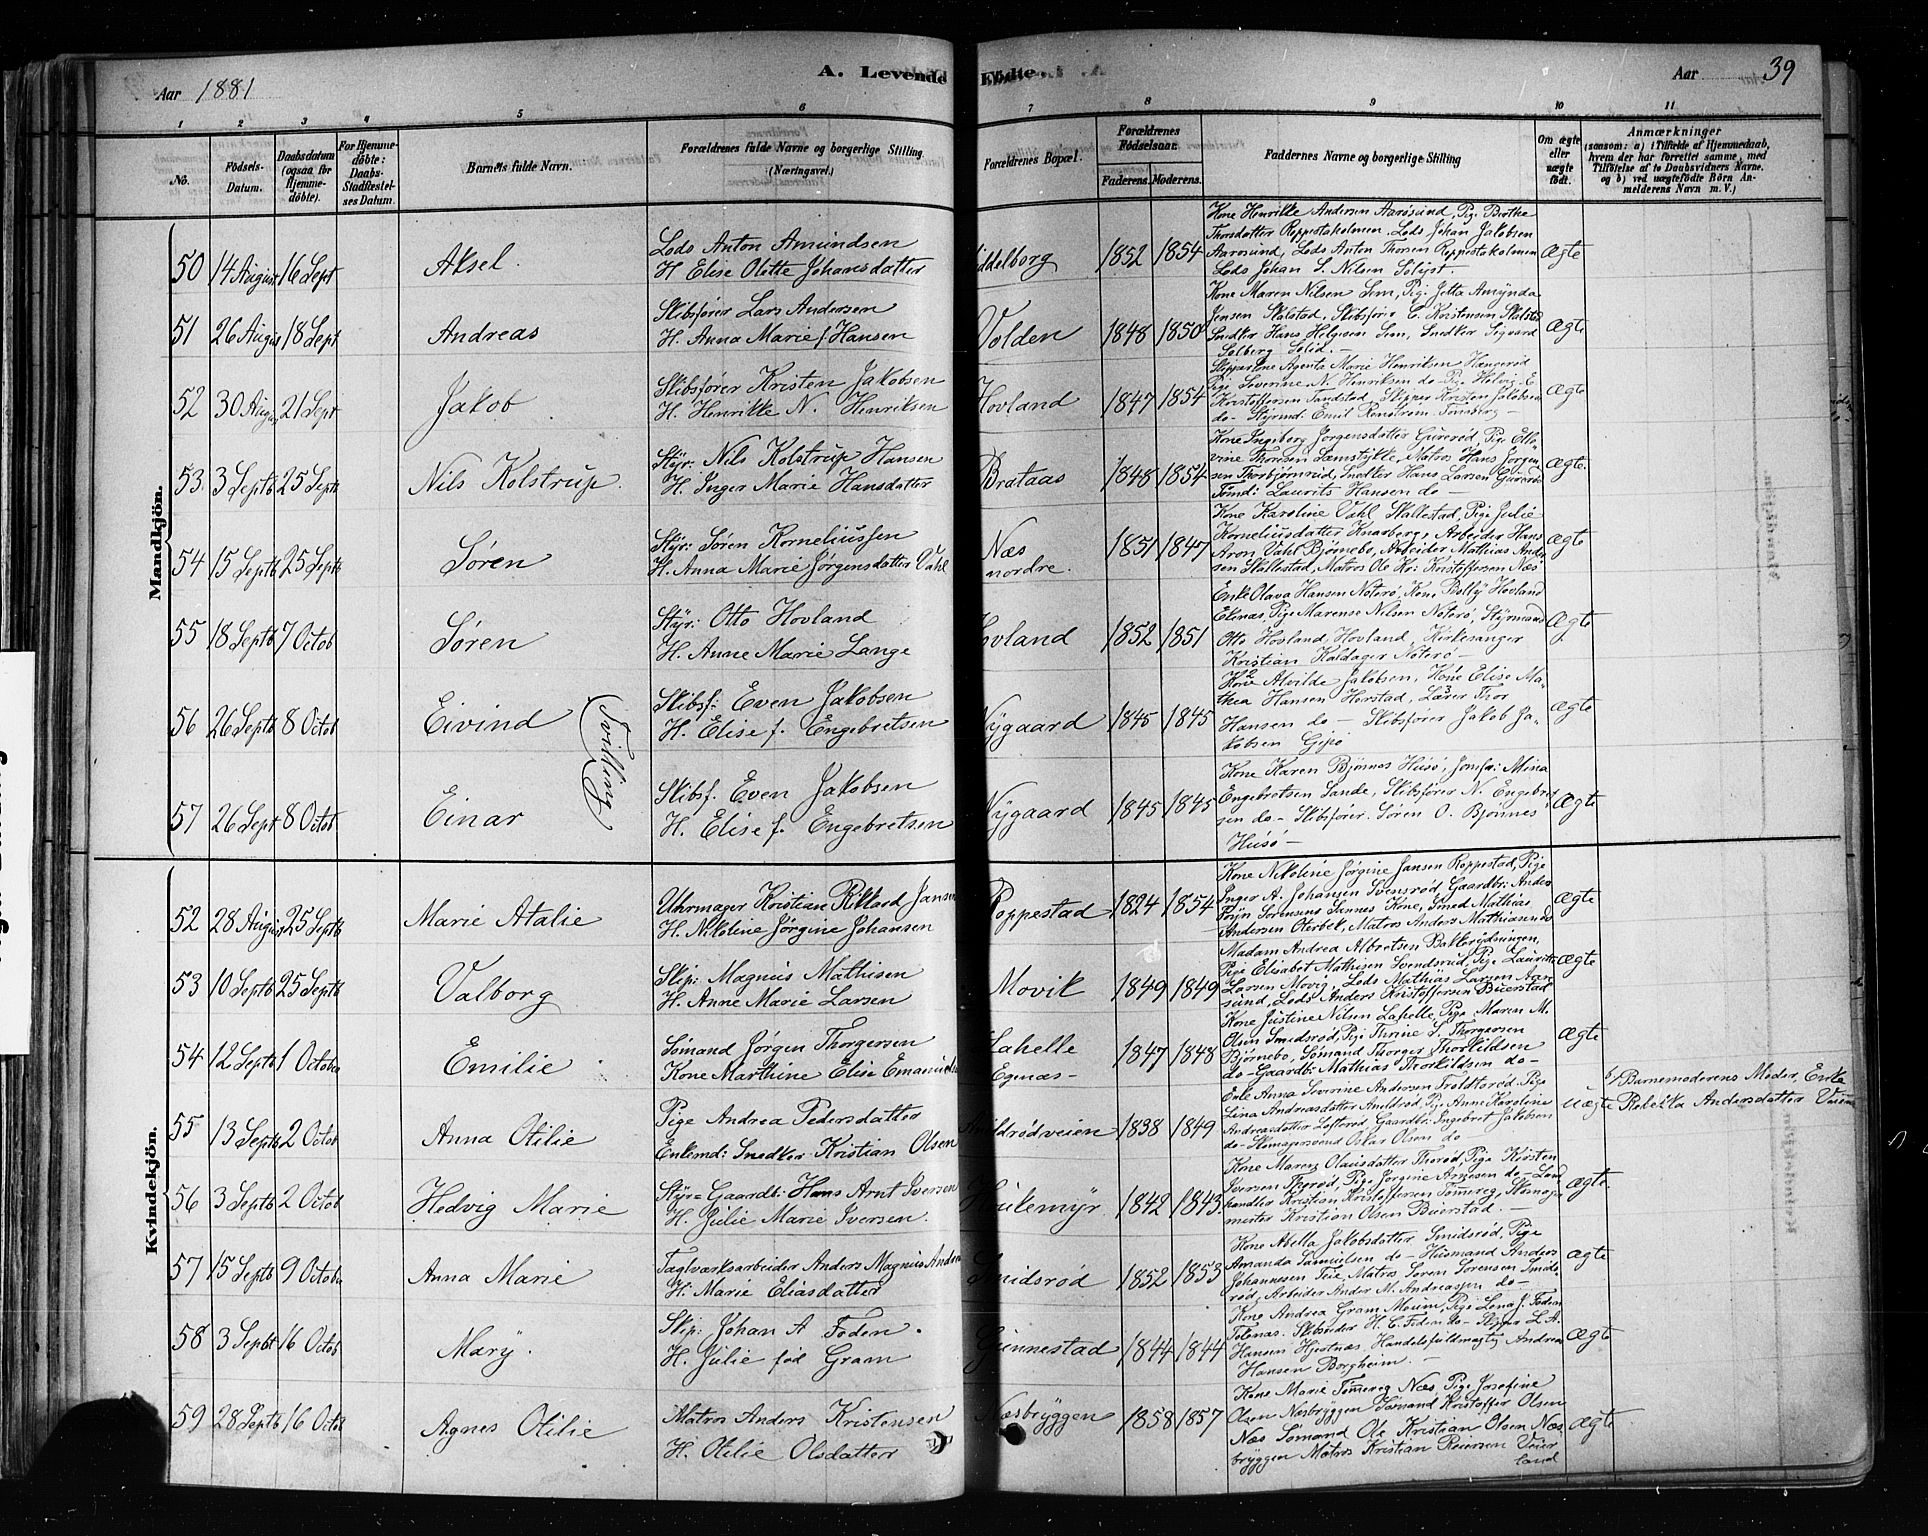 Aar 1881
A. Levende Fødte.
Aar 39
1 2 3 4 5 6 7 8 9 10 11
No.
Fødsels-Datum.
Daabsdatum (ogsaa for Hjemmedøbte).
For Hjemmedøbte: Daabs-Stadfæstelses Datum.
Barnets fulde Navn.
Forældrenes fulde Navne og borgerlige Stilling (Næringsvei.)
Forældrenes Bopæl.
Forældrenes Fødselsaar.
Faderens. Moderens.
Faddernes Navne og borgerlige Stilling
Om ægte eller uægte født.
Anmærkninger
(saasom: a) i Tilfælde af Hjemmedaab, hvem der har forrettet samme, med Tilføielse af to Daabsvidners Navne. og b) ved uægtefødte Børn Anmelderens Navn m. V.)
Mandkjön.
50 14 August 16 Sept Aksel.
Lods Anton Amundsen
H. Elise Olette Johansdatter
1852 1854
Kone Henrikke Andersen Aarøsund, Pige Berthe
Thorsdatter Roppestadholmen, Lods Johan Jakobsen
Aarøsund, Lods Anton Thorsen Roppestadholmen
Lods Johan S. Nilsen Solyst.
Ægte
51 26 August 18 Sept Andreas
Skibsfører Lars Andersen
H. Anna Marie f. Hansen
Volden 1848 1850
Kone Maren Nilsen Sem, Pige Jetta Amynda
Jensen Skalstad, Skibsfører C. Kristensen Skalstad
Snedker Hans Helgesen Sem, Snedker Sigvard
Solberg Solid.
Ægte
52 30 August 21 Sept Jakob
Skibsfører Kristen Jakobsen
H. Henrikke N. Henriksen
Hovland 1847 1854
Agenta Marie Henriksen Hængerød
Pige Severine N. Henriksen do. Pige Helvig E.
Kristoffersen Sandstad, Skipper Kristen Jakobsen
do- Styrmd: Emil Renstrøm Tønsberg
Ægte
53 3 Septb 25 Septb Nils Kolstrup.
Styr: Nils Kolstrup Hansen
H. Inger Marie Hansdatter
Brataas 1848 1854
Kone Ingeborg Jørgensdatter Gurerød, Pige Otto-
vine Thoresen Lemstykke, Matros Hans Jørgen-
sen Thorbjørnrød, Snedker Hans Larsen Gurerød
Tømd: Laurits Hansen do
Ægte.
54 15 Septb 25 Septb Søren
Styr: Søren Korneliussen
H. Anna Marie Jørgensdatter Vahl
Næs nordre. 1851 1847
Kone Karoline Vahl Skallestad, Pige Julie
Korneliusdatter Knarberg, Arbeider Hans
Aron Vahl Bjørnebo, Arbeider Mathias Ander-
sen Skallestad, Matros Ole Kr: Kristoffersen Næs
Ægte
55 18 Septb 7 Octob Søren
Styr: Otto Hovland
H. Anne Marie Lange
Hovland 1852 1851
Enke Olava Hansen Noterø, Kone Hovland
Ekenæs, Pige Marense Nilsen Noterø, Styrmand
Otto Hovland, Hovland, Kirkesanger
Kristian Kaldager Noterø
Ægte
56 26 Septb 8 Octob Eivind (Tvilling)
Skibsf: Even Jakobsen
H. Elise f. Engebretsen
Nygaard 1845 1845
Kone Alvilde Jakobsen, Kone Elise Ma-
thea Hansen Horstad, Lærer Thor
Hansen do - Skibsfører Jakob Ja-
kobsen Gipø
Ægte
57 26 Sept 8 Octob Einar
Skibsf. Even Jakobsen
H. Elise f. Engebretsen
Nygaard 1845 1845
Kone Karen Bjønnes Husø, Jomfr: Mina
Engebretsen Sande, Skibsfører N. Engebret-
sen do- Skibsfører. Søren O. Bjønnes
Husø
Ægte
Kvindekjön.
52 28 August 25 Septb Marie Atalie
Uhrmager Kristian Rikkard Jansen
H. Nikoline Jørgine Johansen
Roppestad 1824 1854
Kone Nikoline Jørgine Jansen Roppestad, Pige
Inger A. Johansen Svensrød, Gaardbr: Anders
Sørensens Sannes Kone, Smed Mathias
Andersen Oterbek, Matros Anders Mathiassen do
Ægte
53 10 Septb 25 Septb Valborg
Skip: Magnus Mathisen
H. Anne Marie Larsen
Movik 1849 1849
Madam Andrea Albretsen Bakkerødningen,
Pige Elisabet Mathisen Svendsrød, Pige Lauritze
Larsen Movig, Lods Mathias Larsen Aarø-
sund, Lods Anders Kristoffersen Buerstad
Ægte
54 12 Septb 1 October Emilie
Sømand Jørgen Thorgersen
Kone Marthine Elise Emanuels
Lahelle Egenæs 1847 1848
Kone Justine Nilsen Lahelle, Pige Maren M.
Olsen Smidsrød, Pige Thrine L. Thorgersen
Bjørnebo, Sømand Thorger Thorkildsen
do- Gaardbr: Mathias Thorkildsen do-
Ægte
55 13 Septb 2 Octob Anna Otilie
Pige Andrea Pedersdatter
Enkemd: Snedker Kristian Olsen
1838 1849
Enke Anna Severine Andersen Troldterød, Pige
Lina Andreasdatter Ameldrød, Pige Anne Karoline
Andreasdatter Lofterød, Gaardbr: Ingebret Jakobsen
do- Skomagersvend Oskar Olsen do
uægte
b/ Barnemoderens Moder, Enke
Rebekka Andersdatter
56 3 Septb 2 Octob Hedvig Marie
Styr= Gaardb: Hans Arnt Iversen
H. Julie Marie Iversen.
1842 1843
Kone Maren Olausdatter Thorød, Pige Kirsten
Iversen Pige Jørgine Arnesen do- Land-
handler Kristian Kristoffersen Tømereg, Skomager-
mester Kristian Olsen Buerstad.
Ægte.
57 15 Septb 9 October Anna Marie
Taglværksarbeider Anders Magnus Anders
H. Marie Eliasdatter
Smidsrød 1852 1853
Kone Abella Jakobsdatter Smidsrød, Pige
Amanda Samuelsen do- Husmand Anders
Johannesen Teie, Matros Søren Sørensen Smids-
rød, Arbeider Ander M. Andreassen do-
Ægte
58 3 Septbt 16 Octob Mary.
Skip: Johan A Foden.
H. Julie fød Gram
Gunnestad 1844 1844
Kone Andrea Gram Moum, Pige Lena J. Foden
Skibsreder H. C. Foden do- L. A.
Hansen Hjertnæs, Handelsfuldmægtig Andreas
Hansen Borgheim.
Ægte
59 28 Septb 16 Octob Agnes Otilie
Matros Anders Kristensen
H. Otilie Olsdatter
Næsbryggen 1858 1857
Kone Marie Tømereg Næs, Pige Josefine
Olsen Næsbryggen Sømand Kristoffer Olsen
Næs Sømand Ole Kristian Olsen Næs-
bryggen Matros Kristian Reiersen Veier
land
Ægte